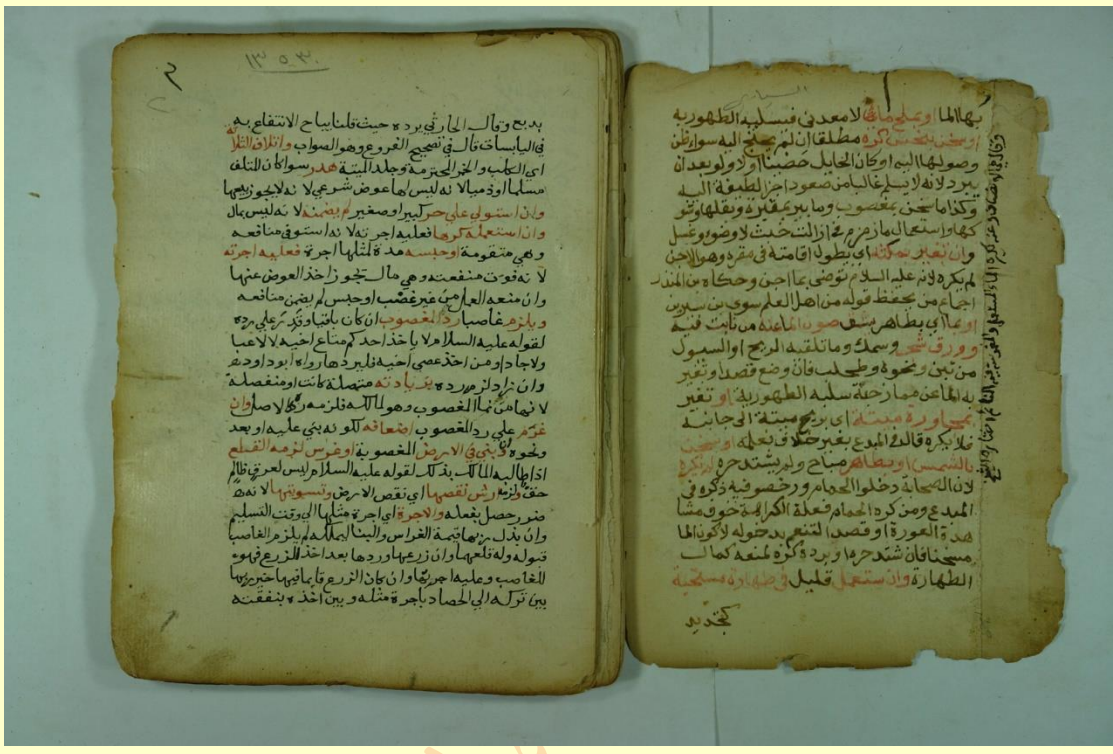 بها الما او بملح مائي لا معدني فتسلبه الطهورية
او سخن بنجس كره مطلقا ان لم يحتج اليه سواء ظن
وصولها اليه او كان الحايل حصينا اولا ولو بعد ان
يبرد لانه لا يسلم غالبا من صعود اجزا لطيفة اليه
وكذا ما سخن بمغصوب وما بير بمقبرة وبقلها وشو
كها واستعمال ما زمزم في ازالت خبث لا وضو وغسل
وان تغير بمكثه اي بطول اقامته في مقره وهو الاجن
لم يكره لانه عليه السلام توضى بما اجن وحكاه بن المنذر
اجماع من يحفظ قوله من اهل العلم سوى بن سيرين
او بما اي بطاهر يشق صون الما عنه من نابت فيه
وورق شجر وسمك وما تلقيه الريح او السيول
من تبن ونحوه وطحلب فان وضع قصدا وتغير
به الما عن ممازجة سلبه الطهورية او تغير
بمجاورة ميتة اي بريح ميتة الى جانبه
فلا يكره قال في المبدع بغير خلاف نعلمه او سخن
بالشمس او بطاهر مباح ولم يشتد حره لم يكره
لان الصحابة دخلوا الحمام ورخصو فيه ذكره في
المبدع ومن كره الحمام فعلة الكراهة خوف مشا
هدة العورة او قصد التنعم بدخوله لا كون الما
مسخنا فان شتد حره او برده كره لمنعه كمال
الطهارة وان ستعمل قليل في طهارة مستحبة
كتجديد
١٣٥٣٠
بديع وقال الحارثي يرده حيث قلنا يباح الانتفاع به
في اليابسات قال في تصحيح الفروع وهو الصواب واتلاف الثلاثة
اي الكلب والخمر المحترمة وجلد الميتة هدر سوا كان المتلف
مسلما او ذميا لانه ليس لها عوض شرعي لانه لا يجوز بيعها
وان استولى على حر كبير او صغير لم يضمنه لانه ليس بمال
وان استعمله كرها فعليه اجرته لانه استوفى منافعه
وهي متقومة او حبسه مدة لمثلها اجرة فعليه اجرته
لانه فوت منفعته وهي مال تجوز اخذ العوض عنها
وان منعه العمل من غير غصب او حبس لم يضمن منافعه
ويلزم غاصبا رد المغصوب ان كان باقيا وقدر على رده
لقوله عليه السلام لا ياخذ احدكم متاع اخيه لا لاعبا
ولا جادا ومن اخذ عصى اخيه فليردها رواه ابو داود
وان زاد لزمه رده بزيادته متصلة كانت او منفصلة
لانها من نما المغصوب وهو لمالكه فلزمه رد كالاصل وان
غرم على رد المغصوب اضعافه لكونه بني عليه او بعد
ونحوه وان بنى في الارض المغصوبة او غرس لزمه القلع
اذا طالبه المالك بذلك لقوله عليه السلام ليس لعرق ظالم
حق ولزمه ارش نقصها اي نقص الارض وتسويتها لانه
ضرر حصل بفعله والاجرة اي اجرة مثلها الى وقت التسليم
وان بذل ربها قيمة الغراس والبنا ليملكه لم يلزم الغاصب
قبوله وله قلعهما وان زرعها وردها بعد اخذ الزرع فهو
للغاصب وعليه اجرتها وان كان الزرع قايما فيها خير ربها
بين تركه الى الحصاد باجرة مثله وبين اخذه بنفقته